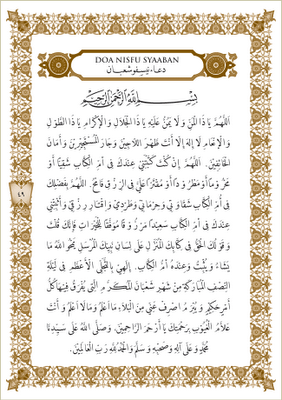 DOA NISFU SYAABAN
دعاء نيسفو شعبان
بِسْمِ اللَّهِ الرَّحْمَنِ الرَّحِيمِ
اَللّٰهُمَّ يَا ذَا الْمَنِّ وَلَا يُمَنُّ عَلَيْهِ يَا ذَا الْجَلَالِ وَالْإِكْرَامِ يَا ذَا الطَّوْلِ
وَالْإِنْعَامِ لَا إِلٰهَ إِلَّا أَنْتَ ظَهْرَ اللَّاجِيْنَ وَجَارَ الْمُسْتَجِيْرِيْنَ وَأَمَانَ
الْخَائِفِيْنَ. اَللّٰهُمَّ إِنْ كُنْتَ كَتَبْتَنِيْ عِنْدَكَ فِيْ أُمِّ الْكِتَابِ شَقِيًّا أَوْ
مَحْرُوْمًا أَوْ مَطْرُوْدًا أَوْ مُقْتَرًّا عَلَيَّ فِي الرِّزْقِ فَامْحُ. اَللّٰهُمَّ بِفَضْلِكَ
فِيْ أُمِّ الْكِتَابِ شَقَاوَتِيْ وَحِرْمَانِيْ وَطَرْدِيْ وَاقْتِتَارَ رِزْقِيْ وَأَثْبِتْنِيْ
عِنْدَكَ فِيْ أُمِّ الْكِتَابِ سَعِيْدًا مَرْزُوْقًا مُوَفَّقًا لِلْخَيْرَاتِ فَإِنَّكَ قُلْتَ
وَقَوْلُكَ الْحَقُّ فِيْ كِتَابِكَ الْمُنَزَّلِ عَلَى لِسَانِ نَبِيِّكَ الْمُرْسَلِ يَمْحُو اللّٰهُ مَا
يَشَاءُ وَيُثْبِتُ وَعِنْدَهُ أُمُّ الْكِتَابِ. إِلٰهِيْ بِالتَّجَلِّي الْأَعْظَمِ فِيْ لَيْلَةِ
النِّصْفِ الْمُبَارَكَةِ مِنْ شَهْرِ شَعْبَانَ الْمُكَرَّمِ الَّتِيْ يُفْرَقُ فِيْهَا كُلُّ
أَمْرٍ حَكِيْمٍ وَيُبْرَمُ اِصْرِفْ عَنِّيْ مِنَ الْبَلَاءِ مَا أَعْلَمُ وَمَا لَا أَعْلَمُ وَأَنْتَ
عَلَّامُ الْغُيُوْبِ بِرَحْمَتِكَ يَا أَرْحَمَ الرَّاحِمِيْنَ. وَصَلَّى اللّٰهُ عَلَى سَيِّدِنَا
مُحَمَّدٍ وَعَلَى آلِهِ وَصَحْبِهِ وَسَلَّمَ وَالْحَمْدُ لِلّٰهِ رَبِّ الْعَالَمِيْنَ.
٤٩